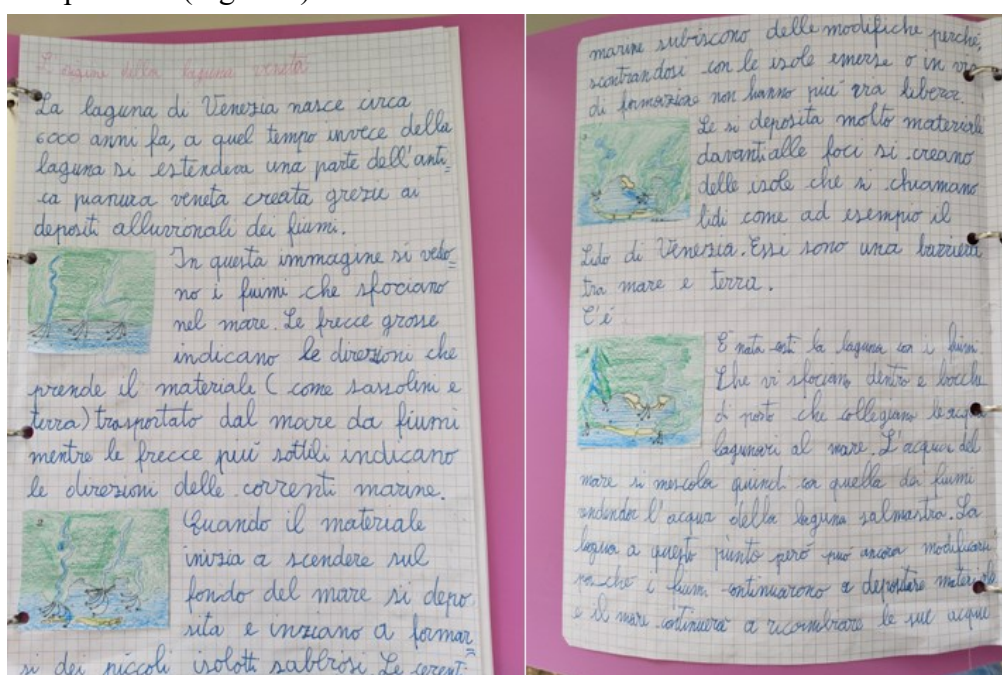 L'origine della laguna veneta
La laguna di Venezia nasce circa
6000 anni fa, a quel tempo invece della
laguna si estendeva una parte dell'anti-
ca pianura veneta creata grazie ai
depositi alluvionali dei fiumi.
In questa immagine si vedo-
no i fiumi che sfociano
nel mare. Le frecce grosse
indicano le direzioni che
prende il materiale (come sassolini e
terra) trasportato dal mare da fiumi
mentre le frecce più sottili indicano
le direzioni delle correnti marine.
2
Quando il materiale
inizia a scendere sul
fondo del mare si depo
sita e iniziano a formar
si dei piccoli isolotti sabbiosi. Le corenti
marine subiscono delle modifiche perché,
scontrandosi con le isole emerse o in via
di formazione non hanno più via libera.
3
Se si deposita molto materiale
davanti alle foci si creano
delle isole che si chiamano
lidi come ad esempio il
Lido di Venezia. Essi sono una barriera
tra mare e terra.
C'è
È nata così la laguna con i fiumi
che vi sfociano dentro e bocche
di porto che collegano le acque
lagunari al mare. L'acqua del
mare si mescola quindi con quella dei fiumi
rendendo l'acqua della laguna salmastra. La
laguna a questo punto però può ancora modificarsi
poi che i fiumi continuarono a depositare materiale
e il mare continuerà a ricambiare le sue acque